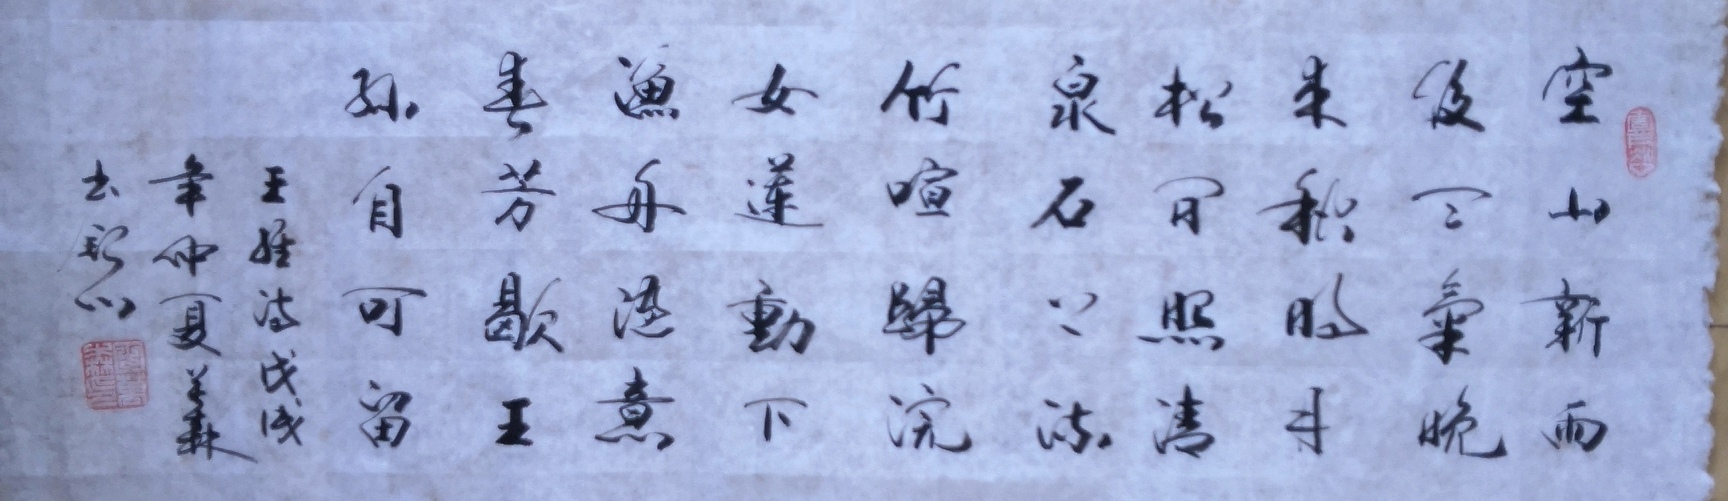 空山新雨
後天氣晚
来秋明月
松间照清
泉石上流
竹喧歸浣
女蓮動下
漁舟随意
春芳歇王
孫自可留
王維诗戊戌
年仲夏義森
书